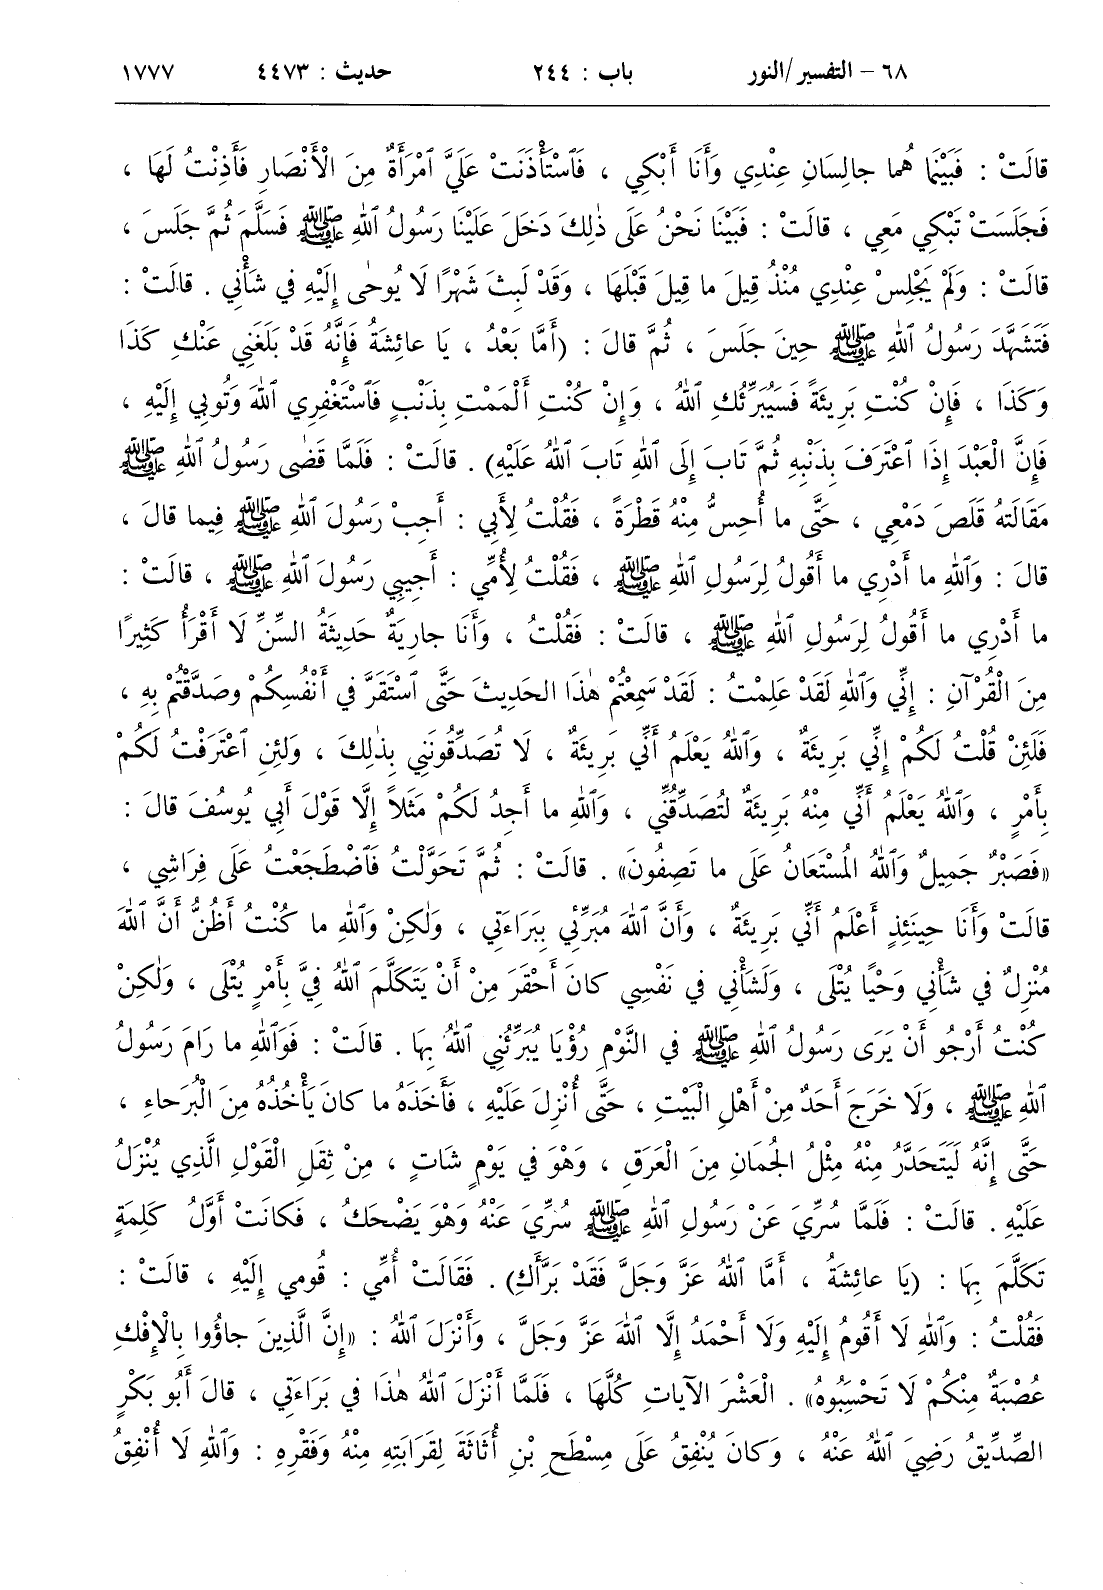 ٦٨ – التفسير/النور باب : ٢٤٤ حديث : ٤٤٧٣ ١٧٧٧
قالَتْ : فَبَيْنَما هُما جالِسانِ عِنْدِي وَأَنَا أَبْكِي ، فَٱسْتَأْذَنَتْ عَلَيَّ ٱمْرَأَةٌ مِنَ الْأَنْصَارِ فَأَذِنْتُ لَهَا ،
فَجَلَسَتْ تَبْكِي مَعِي ، قالَتْ : فَبَيْنَا نَحْنُ عَلَى ذٰلِكَ دَخَلَ عَلَيْنَا رَسُولُ ٱللهِ ﷺ فَسَلَّمَ ثُمَّ جَلَسَ ،
قالَتْ : وَلَمْ يَجْلِسْ عِنْدِي مُنْذُ قِيلَ ما قِيلَ قَبْلَهَا ، وَقَدْ لَبِثَ شَهْرًا لَا يُوحٰى إِلَيْهِ في شَأْنِي . قالَتْ :
فَتَشَهَّدَ رَسُولُ ٱللهِ ﷺ حِينَ جَلَسَ ، ثُمَّ قالَ : (أَمَّا بَعْدُ ، يَا عائِشَةُ فَإِنَّهُ قَدْ بَلَغَنِي عَنْكِ كَذَا
وَكَذَا ، فَإِنْ كُنْتِ بَرِيئَةً فَسَيُبَرِّئُكِ ٱللهُ ، وَإِنْ كُنْتِ أَلْمَمْتِ بِذَنْبٍ فَٱسْتَغْفِرِي ٱللهَ وَتُوبِي إِلَيْهِ ،
فَإِنَّ الْعَبْدَ إِذَا ٱعْتَرَفَ بِذَنْبِهِ ثُمَّ تَابَ إِلَى ٱللهِ تَابَ ٱللهُ عَلَيْهِ) . قالَتْ : فَلَمَّا قَضٰى رَسُولُ ٱللهِ ﷺ
مَقَالَتَهُ قَلَصَ دَمْعِي ، حَتَّى ما أُحِسُّ مِنْهُ قَطْرَةً ، فَقُلْتُ لِأَبِي : أَجِبْ رَسُولَ ٱللهِ ﷺ فِيما قالَ ،
قالَ : وَٱللهِ ما أَدْرِي ما أَقُولُ لِرَسُولِ ٱللهِ ﷺ ، فَقُلْتُ لِأُمِّي : أَجِيبِي رَسُولَ ٱللهِ ﷺ ، قالَتْ :
ما أَدْرِي ما أَقُولُ لِرَسُولِ ٱللهِ ﷺ ، قالَتْ : فَقُلْتُ ، وَأَنَا جارِيَةٌ حَدِيثَةُ السِّنِّ لَا أَقْرَأُ كَثِيرًا
مِنَ الْقُرْآنِ : إِنِّي وَٱللهِ لَقَدْ عَلِمْتُ : لَقَدْ سَمِعْتُمْ هٰذَا الحَدِيثَ حَتَّى ٱسْتَقَرَّ في أَنْفُسِكُمْ وَصَدَّقْتُمْ بِهِ ،
فَلَئِنْ قُلْتُ لَكُمْ إِنِّي بَرِيئَةٌ ، وَٱللهُ يَعْلَمُ أَنِّي بَرِيئَةٌ ، لَا تُصَدِّقُونَنِي بِذٰلِكَ ، وَلَئِنِ ٱعْتَرَفْتُ لَكُمْ
بِأَمْرٍ ، وَٱللهُ يَعْلَمُ أَنِّي مِنْهُ بَرِيئَةٌ لَتُصَدِّقُنِّي ، وَٱللهِ ما أَجِدُ لَكُمْ مَثَلاً إِلَّا قَوْلَ أَبِي يُوسُفَ قالَ :
«فَصَبْرٌ جَمِيلٌ وَٱللهُ المُسْتَعَانُ عَلَى ما تَصِفُونَ» . قالَتْ : ثُمَّ تَحَوَّلْتُ فَٱضْطَجَعْتُ عَلَى فِرَاشِي ،
قالَتْ وَأَنَا حِينَئِذٍ أَعْلَمُ أَنِّي بَرِيئَةٌ ، وَأَنَّ ٱللهَ مُبَرِّئِي بِبَرَاءَتِي ، وَلٰكِنْ وَٱللهِ ما كُنْتُ أَظُنُّ أَنَّ ٱللهَ
مُنْزِلٌ في شَأْنِي وَحْيًا يُتْلَى ، وَلَشَأْنِي في نَفْسِي كانَ أَحْقَرَ مِنْ أَنْ يَتَكَلَّمَ ٱللهُ فِيَّ بِأَمْرٍ يُتْلَى ، وَلٰكِنْ
كُنْتُ أَرْجُو أَنْ يَرَى رَسُولُ ٱللهِ ﷺ في النَّوْمِ رُؤْيَا يُبَرِّئُنِي ٱللهُ بِهَا . قالَتْ : فَوَٱللهِ ما رَامَ رَسُولُ
ٱللهِ ﷺ ، وَلَا خَرَجَ أَحَدٌ مِنْ أَهْلِ الْبَيْتِ ، حَتَّى أُنْزِلَ عَلَيْهِ ، فَأَخَذَهُ ما كانَ يَأْخُذُهُ مِنَ الْبُرَحاءِ ،
حَتَّى إِنَّهُ لَيَتَحَدَّرُ مِنْهُ مِثْلُ الجُمَانِ مِنَ الْعَرَقِ ، وَهْوَ في يَوْمٍ شَاتٍ ، مِنْ ثِقَلِ الْقَوْلِ الَّذِي يُنْزَلُ
عَلَيْهِ . قالَتْ : فَلَمَّا سُرِّيَ عَنْ رَسُولِ ٱللهِ ﷺ سُرِّيَ عَنْهُ وَهْوَ يَضْحَكُ ، فَكانَتْ أَوَّلُ كَلِمَةٍ
تَكَلَّمَ بِهَا : (يَا عائِشَةُ ، أَمَّا ٱللهُ عَزَّ وَجَلَّ فَقَدْ بَرَّأَكِ) . فَقَالَتْ أُمِّي : قُومِي إِلَيْهِ ، قالَتْ :
فَقُلْتُ : وَٱللهِ لَا أَقُومُ إِلَيْهِ وَلَا أَحْمَدُ إِلَّا ٱللهَ عَزَّ وَجَلَّ ، وَأَنْزَلَ ٱللهُ : «إِنَّ الَّذِينَ جاؤُوا بِالْإِفْكِ
عُصْبَةٌ مِنْكُمْ لَا تَحْسِبُوهُ» . الْعَشْرَ الآيَاتِ كُلَّهَا ، فَلَمَّا أَنْزَلَ ٱللهُ هٰذَا في بَرَاءَتِي ، قالَ أَبُو بَكْرٍ
الصِّدِّيقُ رَضِيَ ٱللهُ عَنْهُ ، وَكانَ يُنْفِقُ عَلَى مِسْطَحِ بْنِ أُثَاثَةَ لِقَرَابَتِهِ مِنْهُ وَفَقْرِهِ : وَٱللهِ لَا أُنْفِقُ